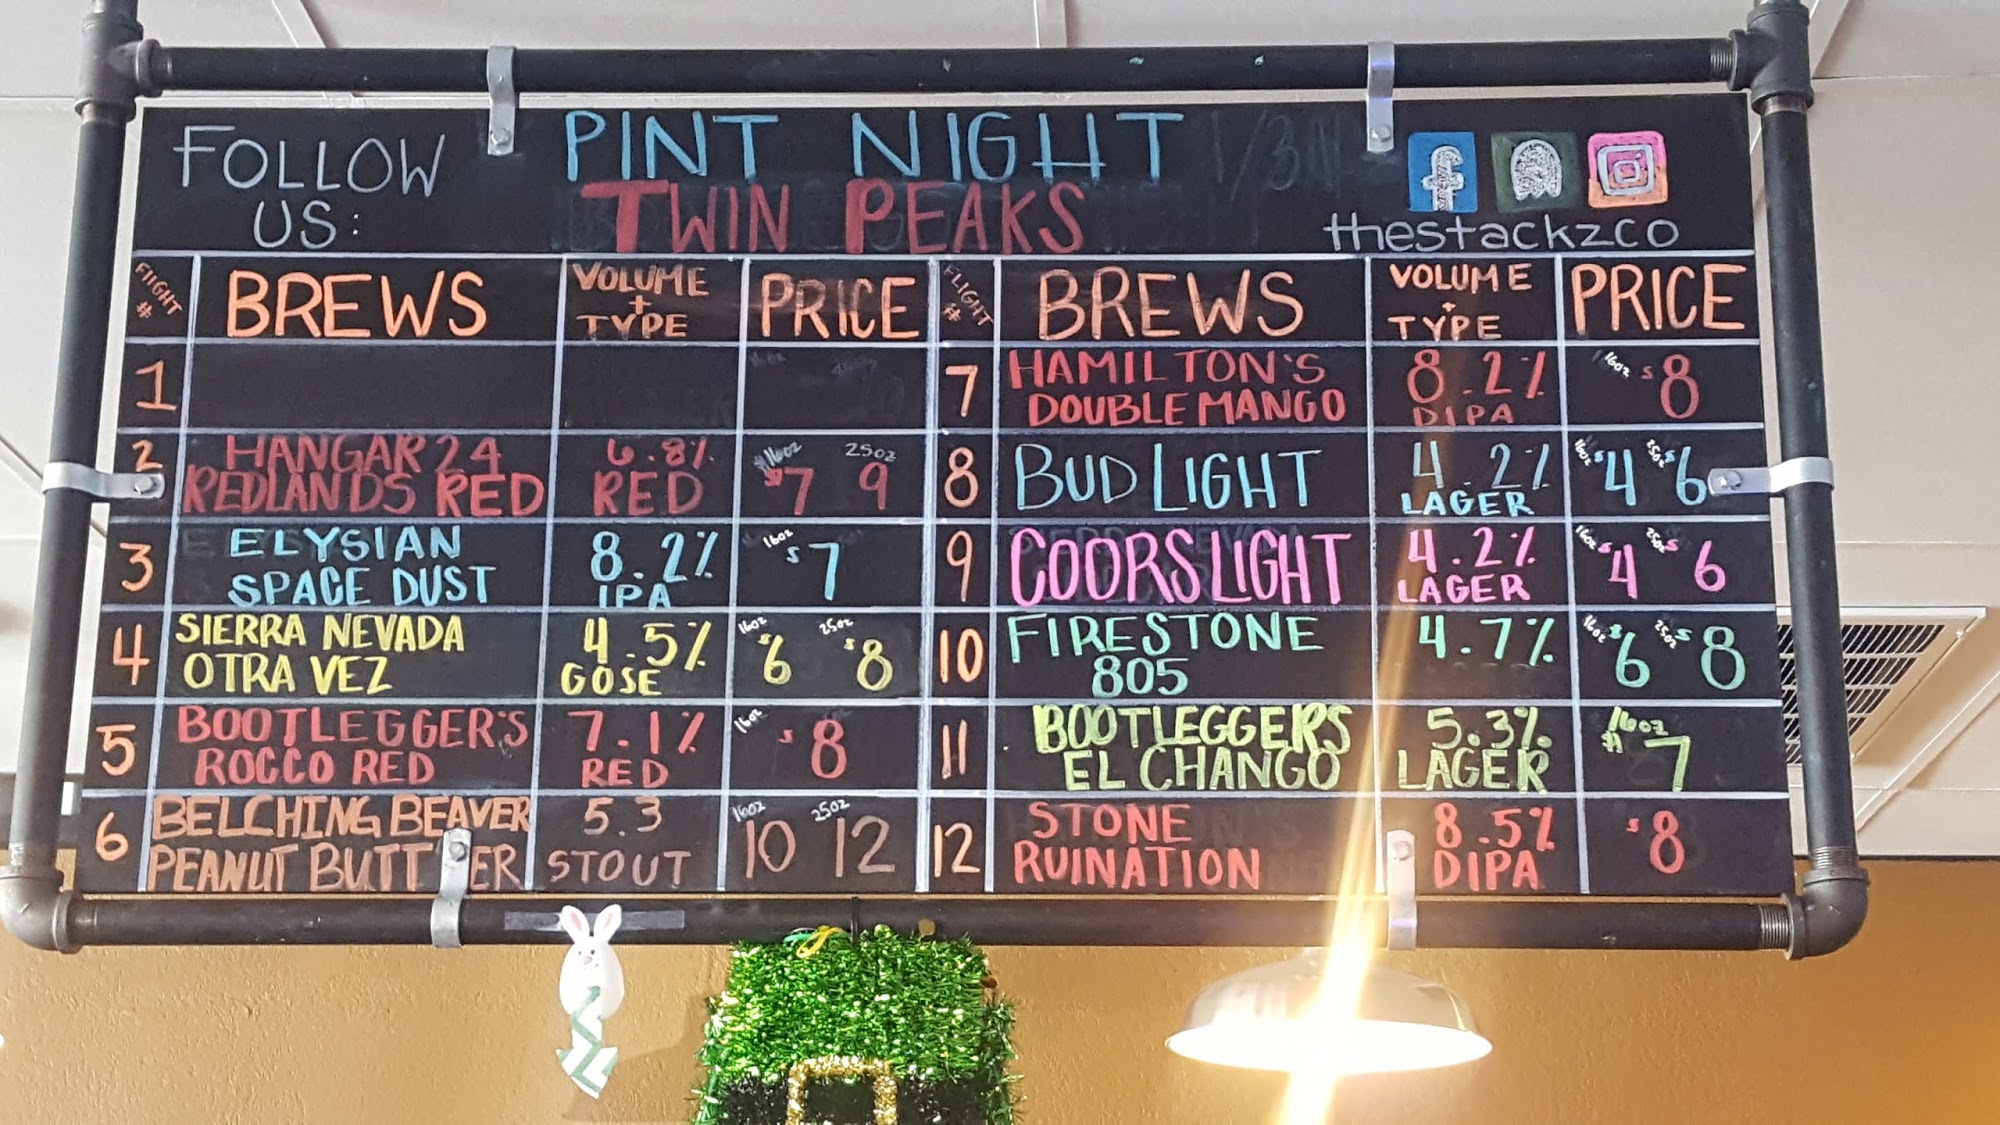 FOLLOW
US:
PINT NIGHT
TWIN PEAKS
thestackzco
FLIGHT # BREWS VOLUME + TYPE PRICE
1
2 HANGAR 24 6.8% 16oz 25oz
REDLANDS RED RED $7 9
3 ELYSIAN 8.2% 16oz
SPACE DUST IPA $7
4 SIERRA NEVADA 4.5% 16oz 25oz
OTRA VEZ GOSE $6 $8
5 BOOTLEGGER'S 7.1% 16oz
ROCCO RED RED $8
6 BELCHING BEAVER 5.3 16oz 25oz
PEANUT BUTTER STOUT 10 12
FLIGHT # BREWS VOLUME + TYPE PRICE
7 HAMILTON'S 8.2% 16oz
DOUBLE MANGO DIPA $8
8 BUD LIGHT 4.2% 16oz 25oz
LAGER $4 $6
9 COORS LIGHT 4.2% 16oz 25oz
LAGER $4 $6
10 FIRESTONE 4.7% 16oz 25oz
805 $6 $8
11 BOOTLEGGERS 5.3% 16oz
EL CHANGO LAGER $7
12 STONE 8.5%
RUINATION DIPA $8